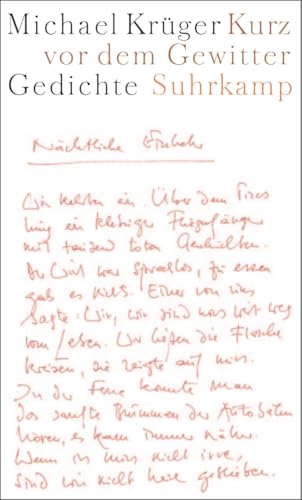 Michael Krüger Kurz
vor dem Gewitter
Gedichte Suhrkamp
Nächtliche Einkehr
Wir kehrten ein. Über dem Tisch
hing ein klebriger Fliegenfänger
mit tausend toten Geschichten.
Der Wirt war sprachlos, zu essen
gab es nichts. Einer von uns
sagte: Wir, wir sind weit weg
vom Leben. Wir ließen die Flasche
kreisen, sie zeigte auf mich.
In der Ferne konnte man
das sanfte Brummen der Autobahn
hören, es kam immer näher.
Wenn ich mich nicht irre,
sind wir nicht lange geblieben.